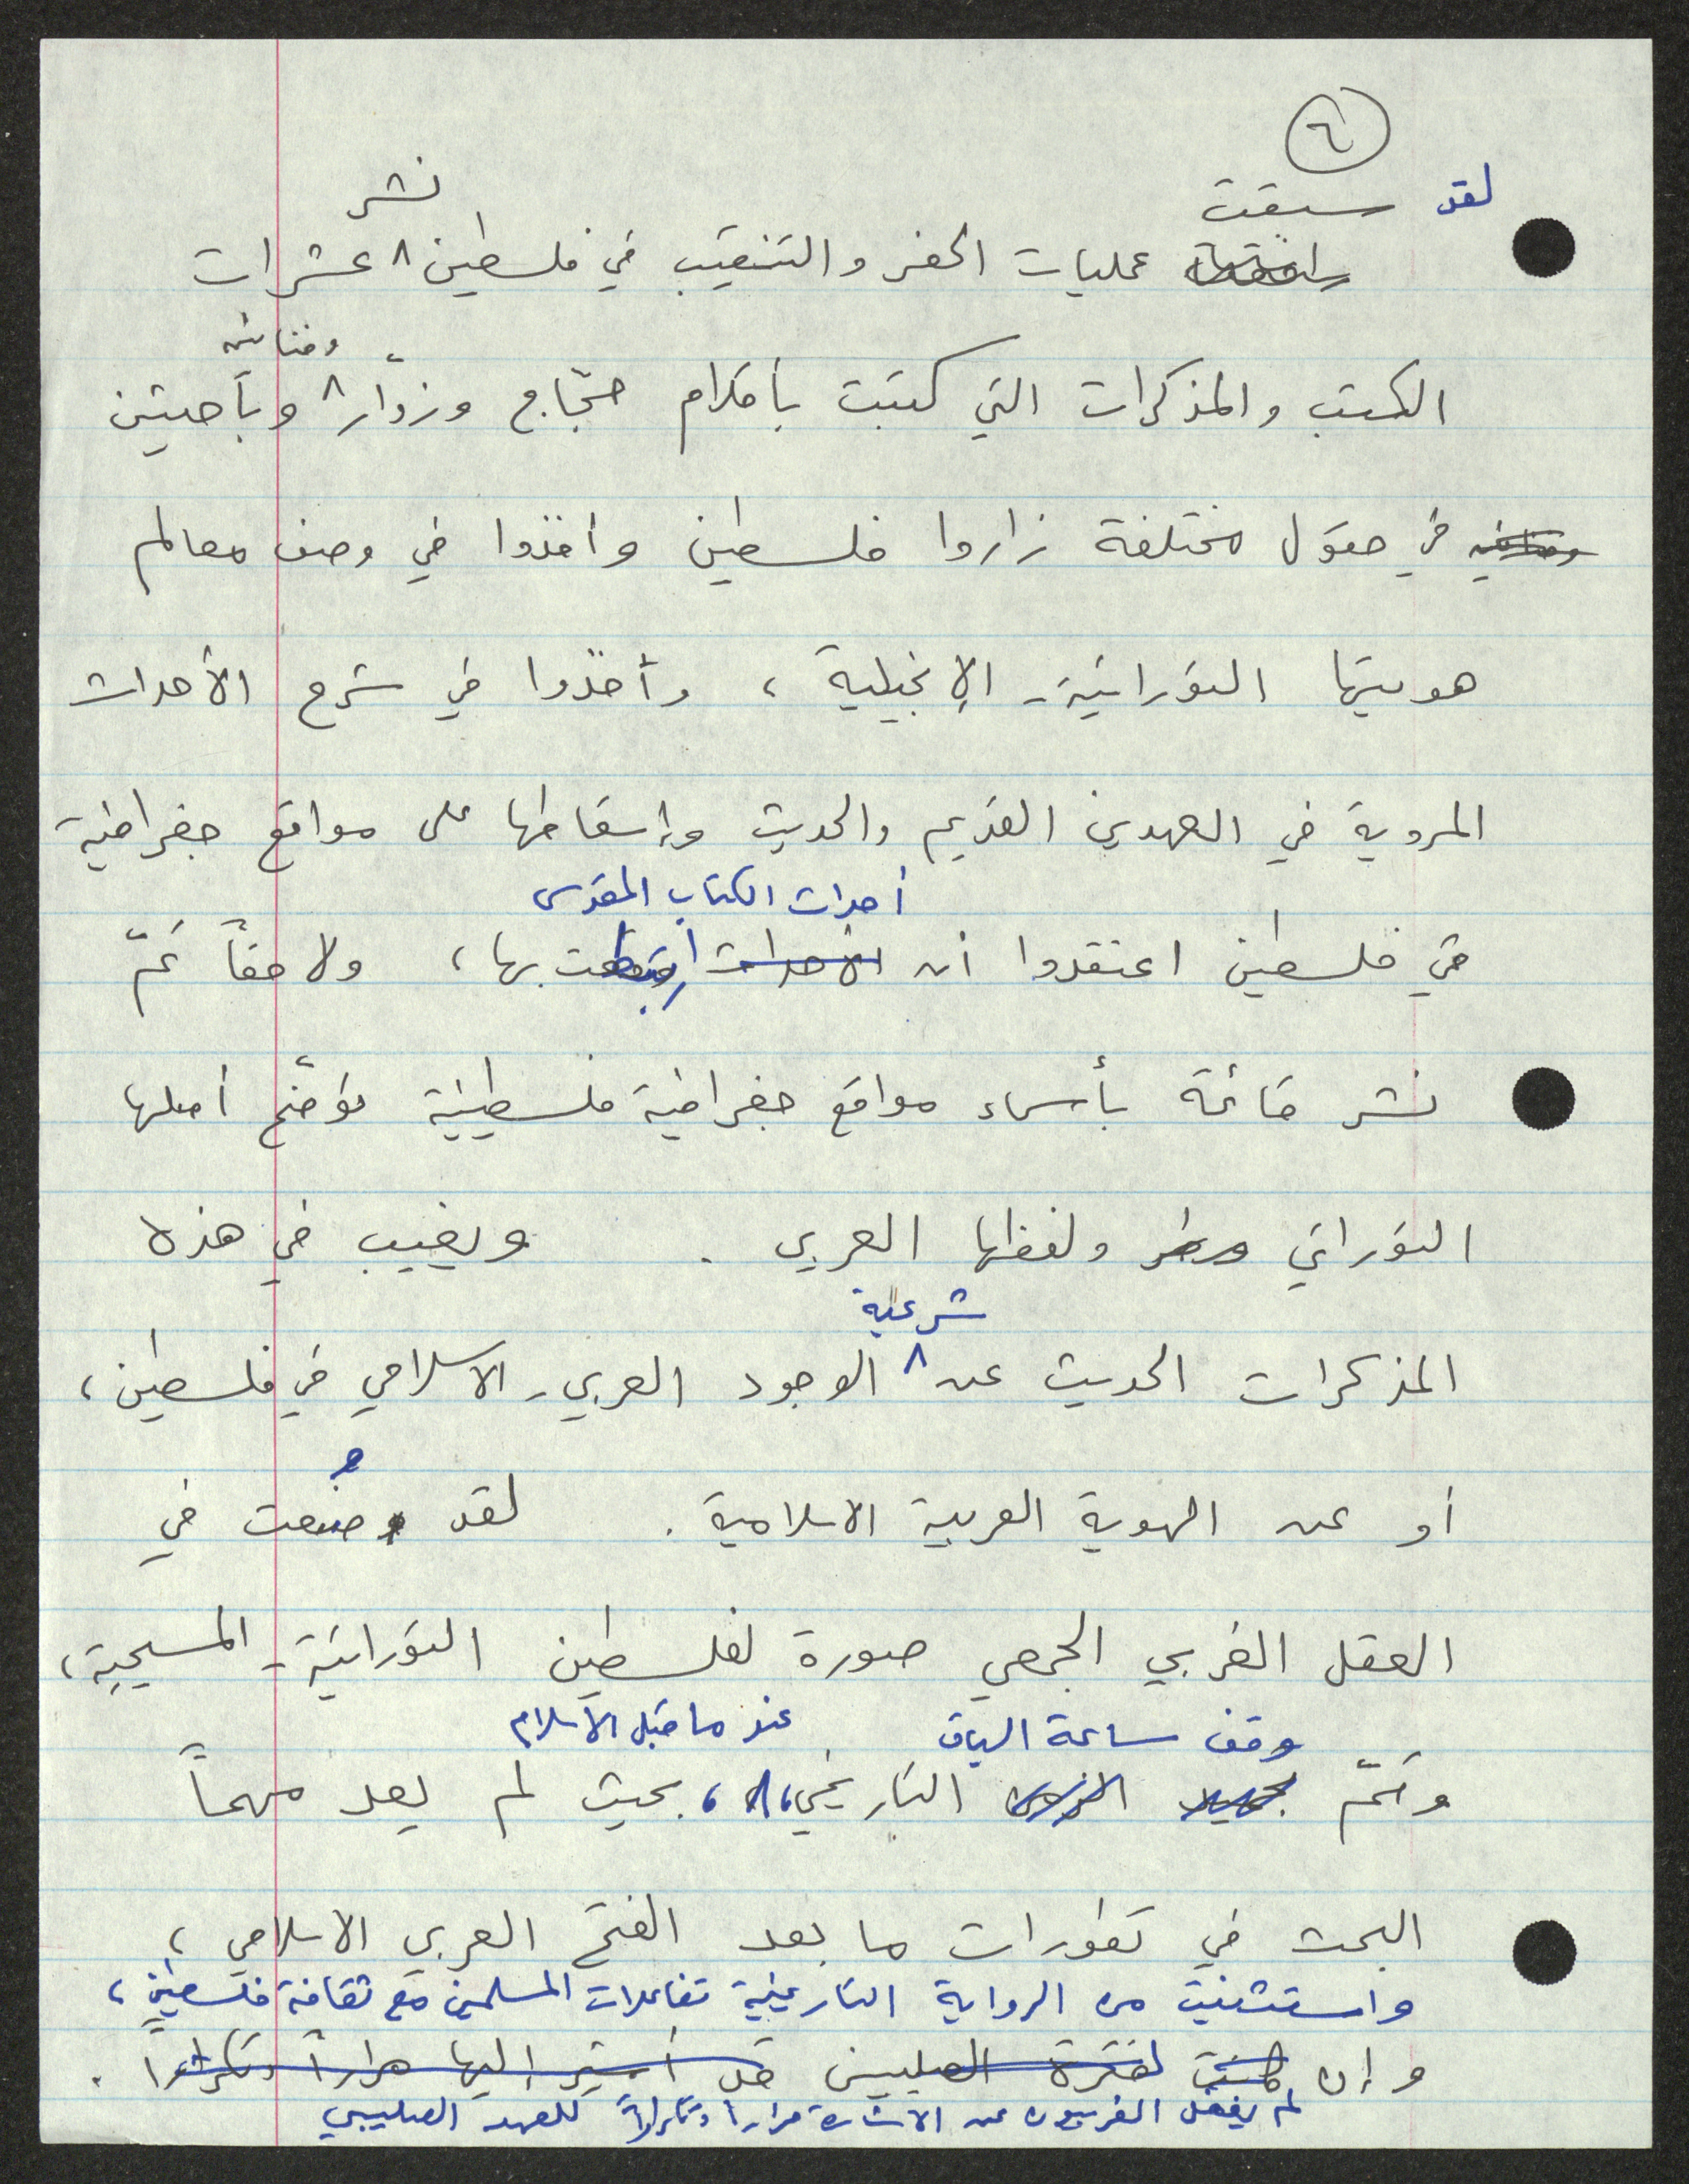 ٦
لقد سبقت
عمليات الحفر والتنقيب في فلسطين نشر عشرات
الكتب والمذكرات التي كتبت بأقلام حجّاج وزوّار وفنانين وباحثين
في حقول مختلفة زاروا فلسطين وأخذوا في وصف معالم
هويتها التوراتية - الإنجيلية ، وأخذوا في شرح الأحداث
المروية في العهدين القديم والحديث وإسقاطها على مواقع جغرافية
أحداث الكتاب المقدس
في فلسطين اعتقدوا أن الأحداث ارتبطت بها ، ولاحقاً تمّ
نشر قائمة بأسماء مواقع جغرافية فلسطينية توضّح أصلها
التوراتي ولفظها العربي . ويغيب في هذه
شرعية
المذكرات الحديث عن الوجود العربي - الاسلامي في فلسطين ،
أو عن الهوية العربية الاسلامية . لقد وُضعت في
العقل الغربي الجمعي صورة لفلسطين التوراتية - المسيحية ،
وقف ساعة السياق عند ما قبل الاسلام
وتمّ التاريخي ، بحيث لم يعد مهماً
البحث في تطورات ما بعد الفتح العربي الاسلامي ،
واستثنيت من الرواية التاريخية تفاعلات المسلمين مع ثقافة فلسطين ،
وإن كانت لفترة الصليبيين قد أشير إليها مراراً وتكراراً .
لم يغفل الغربيون عن الاشارة مراراً وتكراراً للعهد الصليبي